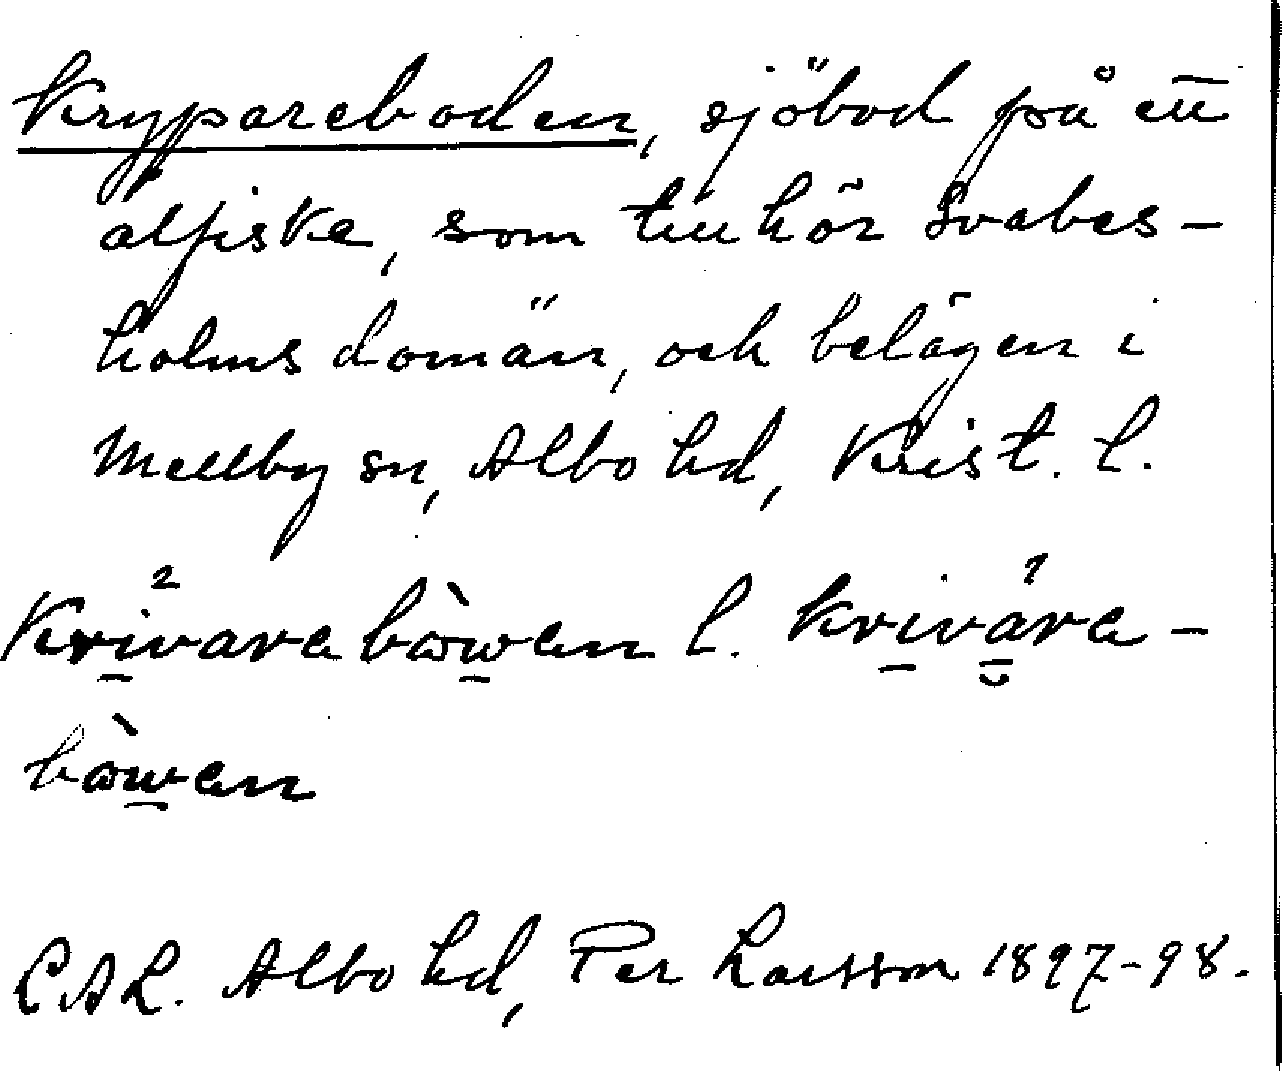 Krypareboden, sjöbod på ett
ålfiske, som tillhör Svabes-
holms domän, och belägen i
Mellby sn, Albo hd, Krist. l.
Krivarebòwen l. Krivare-
bòwen
LAL. Albo hd, Per Larsson 1897-98.